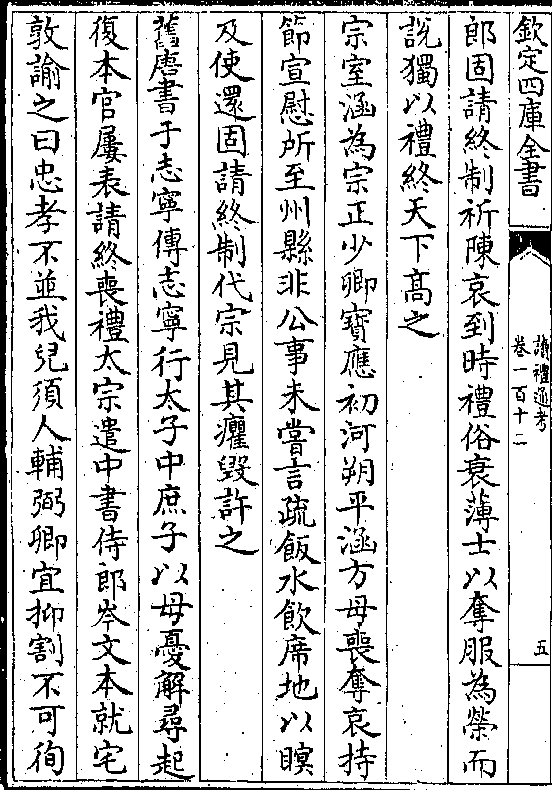 欽定四庫全書
讀禮通考
卷一百十二
五
郎固請終制祈陳哀到時禮俗衰薄士以奪服為榮而
說獨以禮終天下髙之
宗室涵為宗正少卿寶應初河朔平涵方母喪奪哀持
節宣慰所至州縣非公事未嘗言疏飯水飲席地以瞑
及使還固請終制代宗見其癯毀許之
舊唐書于志寧傳志寧行太子中庶子以母憂解尋起
復本官屢表請終喪禮太宗遣中書侍郎岑文本就宅
敦諭之曰忠孝不並我兒須人輔弼卿宜抑割不可徇